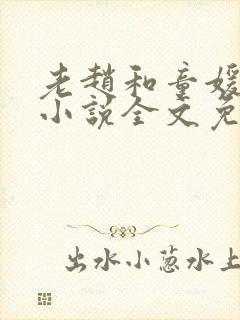 老趙和童媛
小說全文免
出水小葱水上